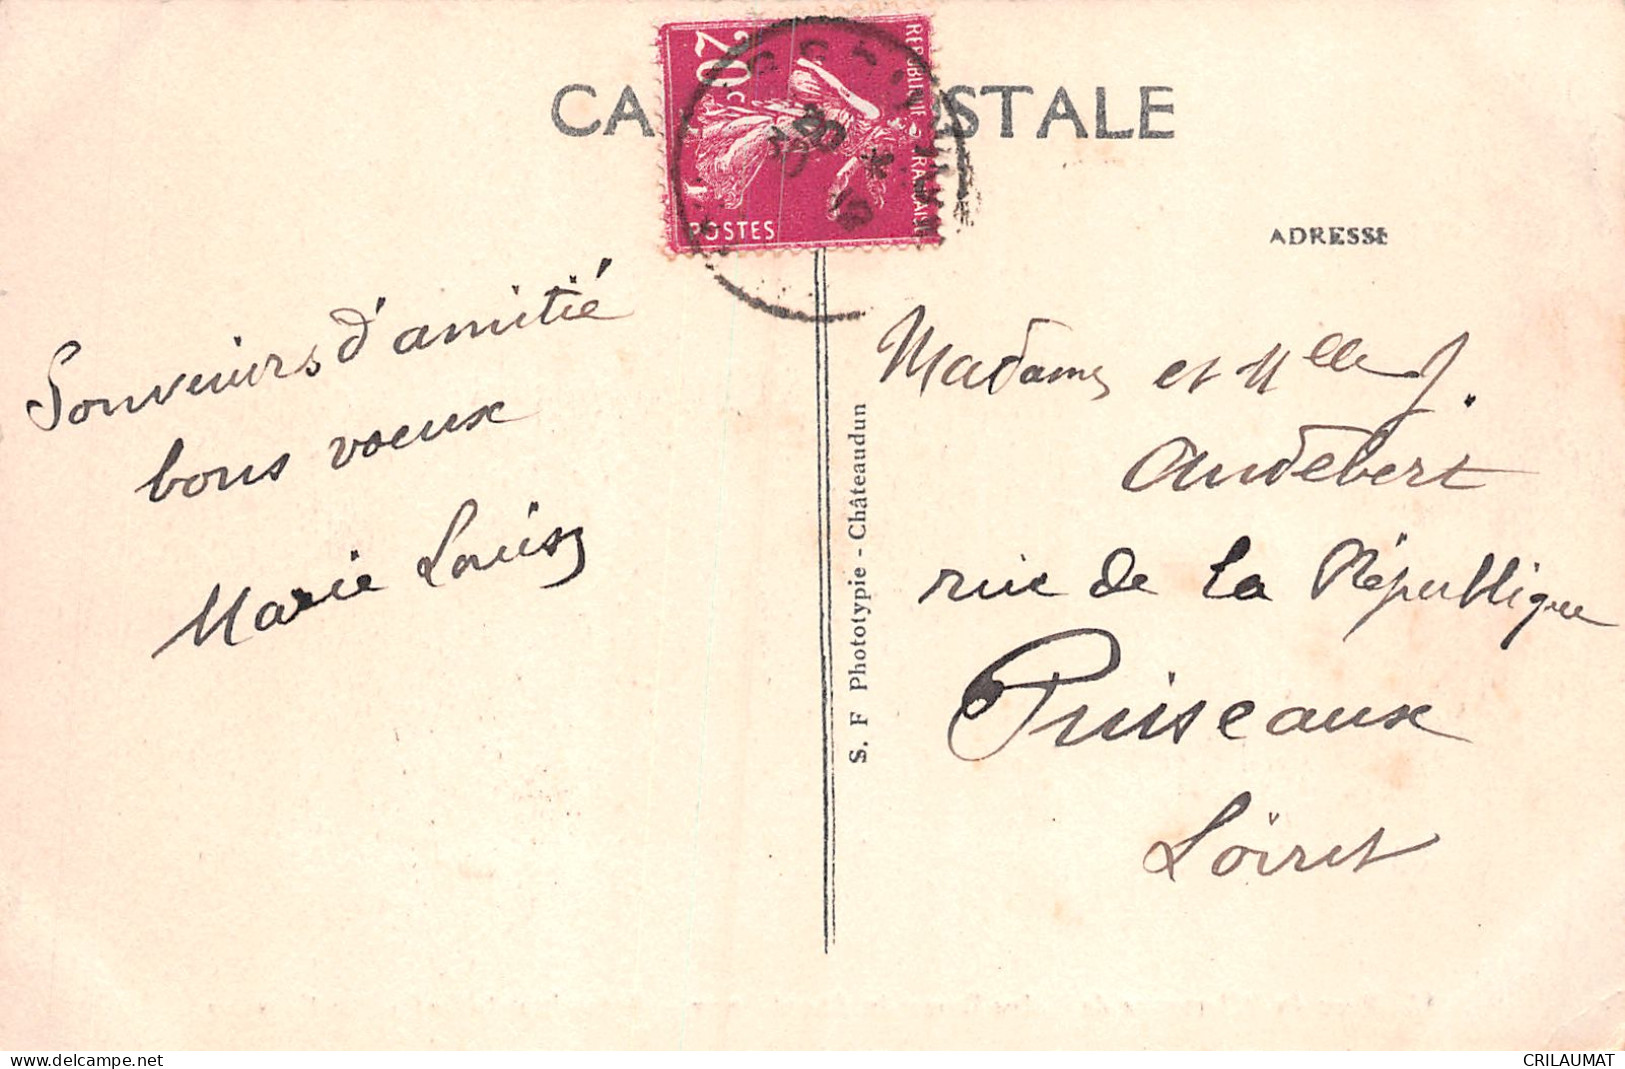 CA
OSTALE
20c
REPUBLIQUE FRANÇAISE
POSTES
ADRESSE
Souvenirs d'amitié
bons voeux
Marie Louise
S. F Phototypie - Châteaudun
Madame et Mlle J.
Audebert
rue de la République
Puiseaux
Loiret
www.delcampe.net
CRILAUMAT